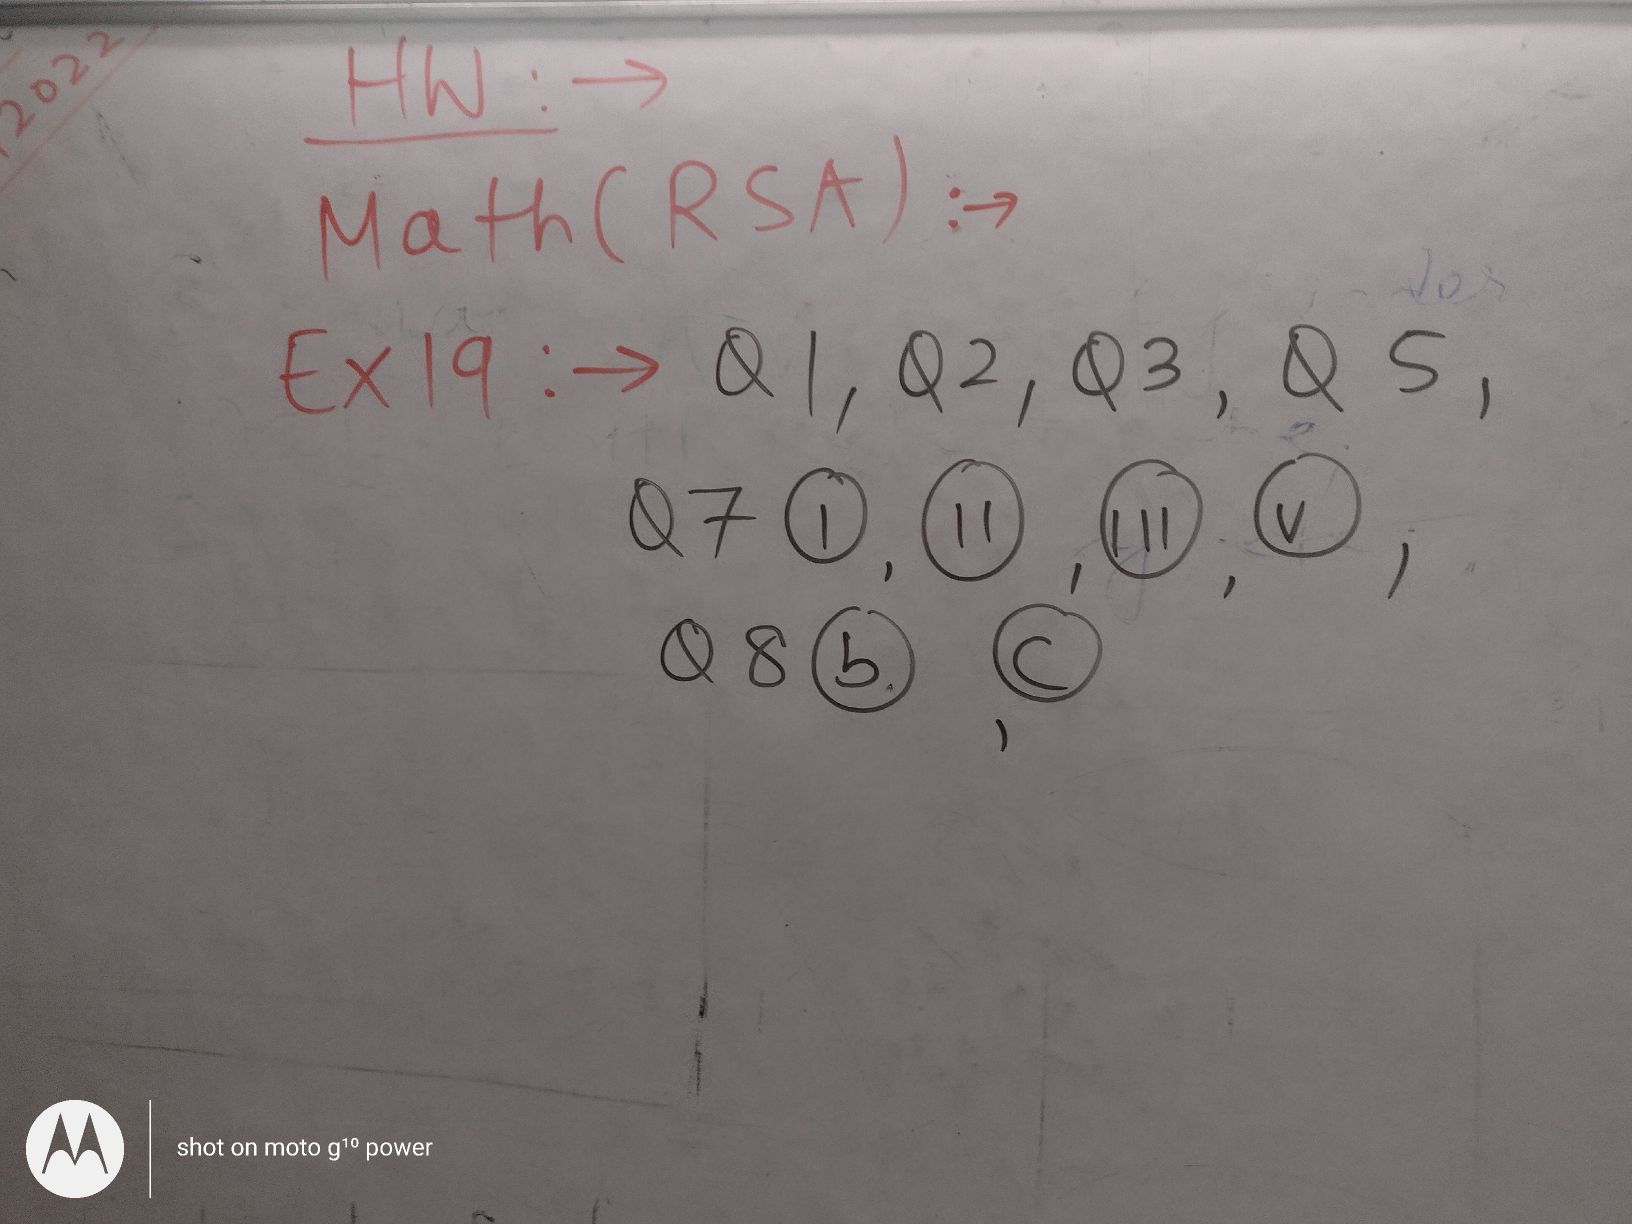 2022
HW :→
Math (RSA) :→
Ex 19 :→ Q1, Q2, Q3, Q5,
Q7 (I), (II), (III), (V),
Q8 (b), (C)
shot on moto g¹⁰ power